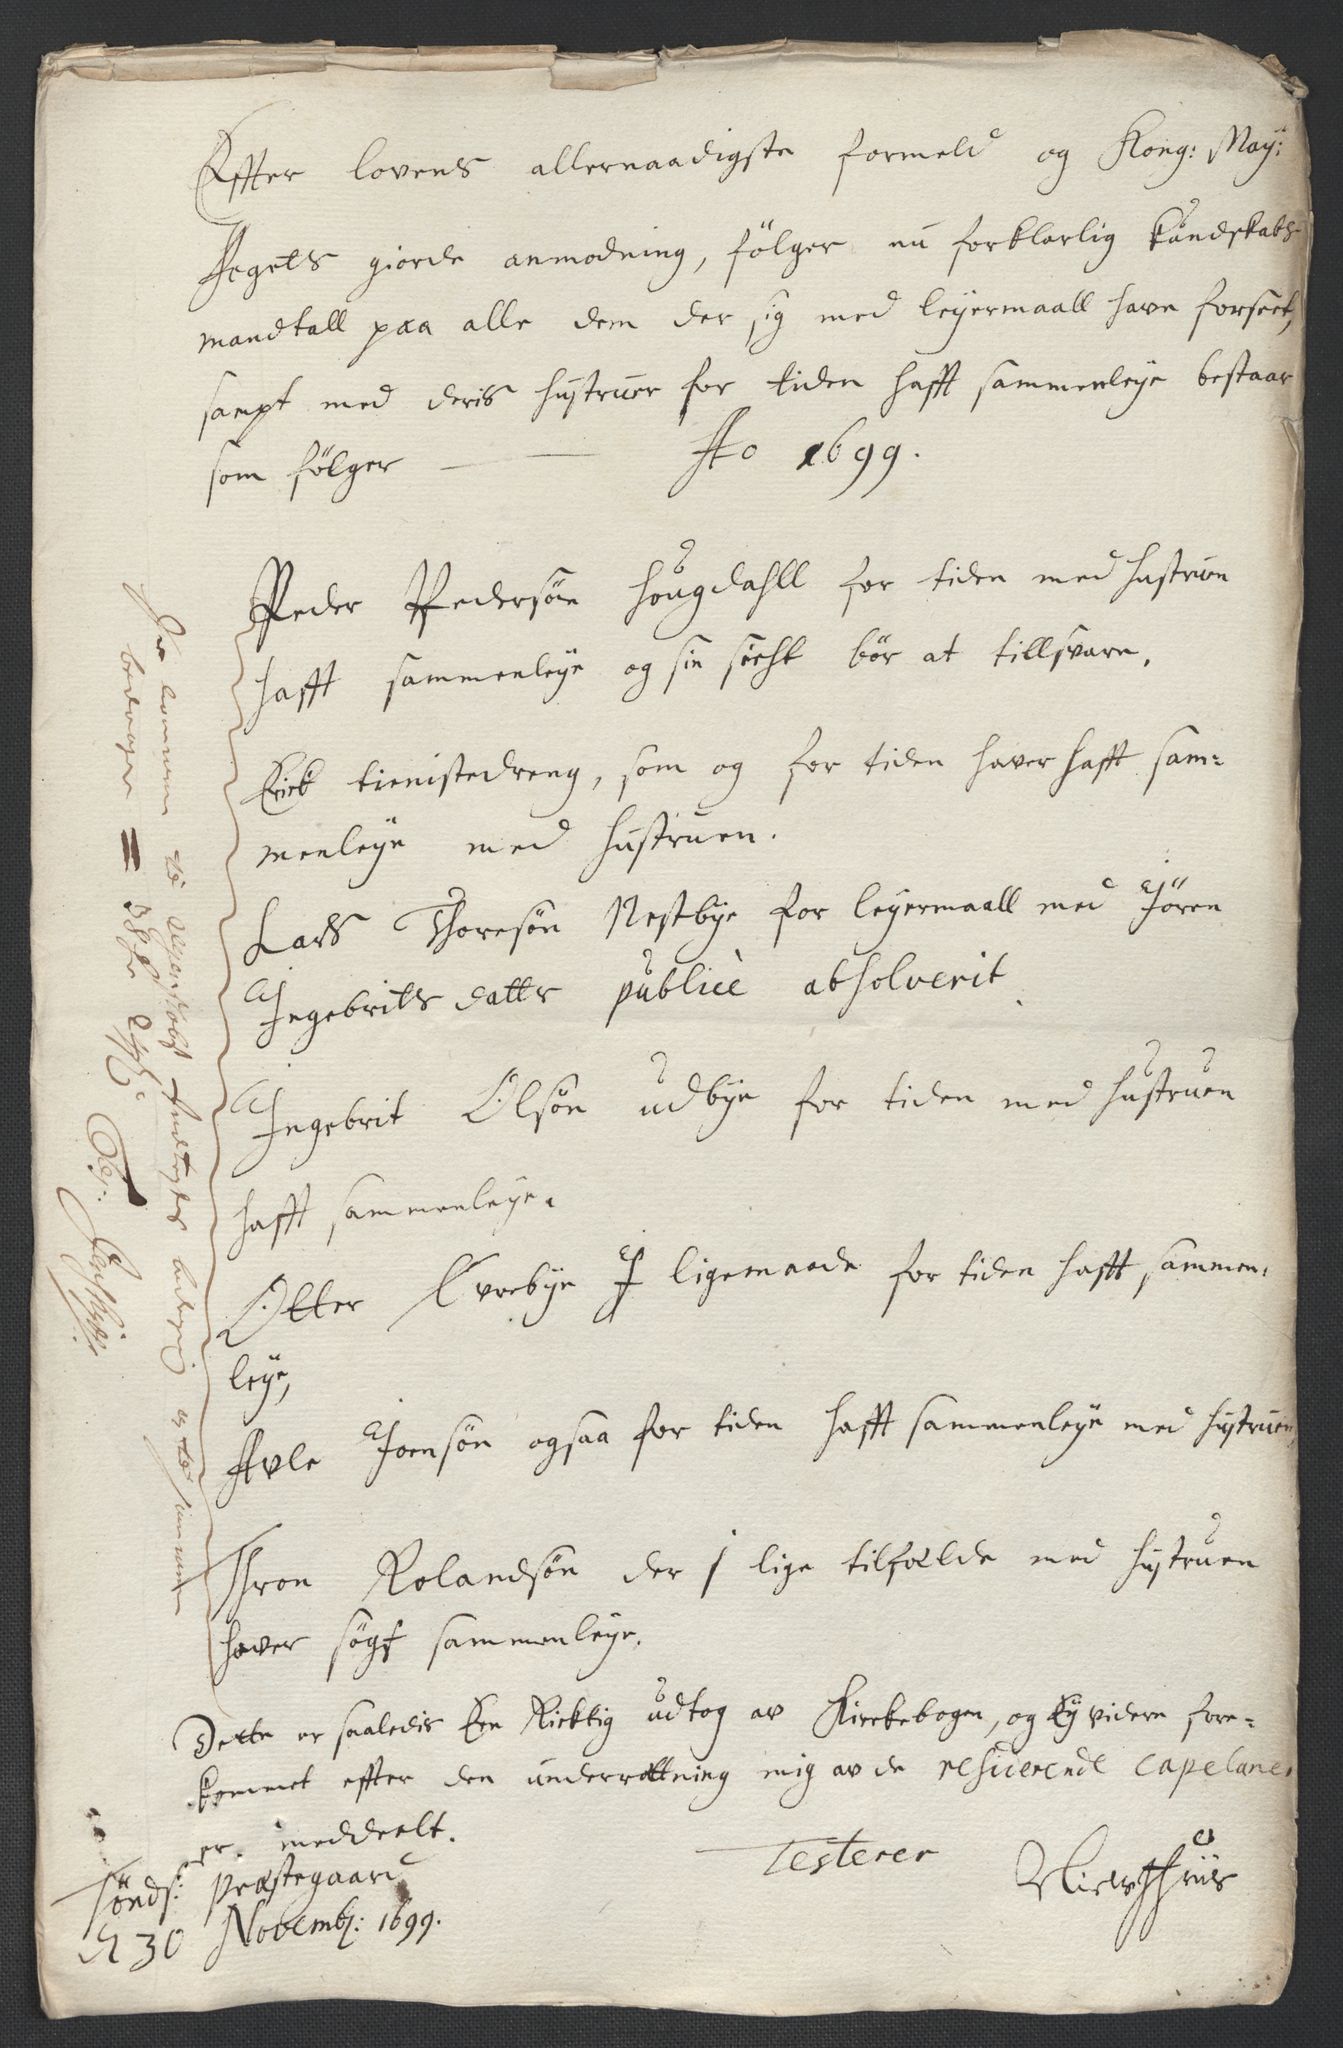 Effter lovens allernaadigste formeld og Kong: May:
Fogets giorde anmodning, fölger nu forklarlig kundskabs
mandtall paa alle dem der sig med leyermaall have forseet,
sampt med deris hustruer for tiden hafft sammenleye bestaar
som fölger Ao 1699.
Peder Pedersön hougdahll for tiden med hustruen
hafft sammenleye og sin sicht bör at tillsvare.
Erick tienistedreng, som og for tiden haver hafft sam:
menleye med hustruen.
Lars Thoresön Nestbye for leyermaall med Jören
Ingebrits datts publicè absolverit
Ingebrit Olsön udbye for tiden med hustruen
hafft sammenleye.
Otter Evrebye I ligemaade for tiden hafft sammen:
leye,
Avle Joensön ogsaa for tiden hafft sammenleye med hustruen
Thron Rolandsön der i lige tilfælde med hustruen
haver sögt sammenleye.
Dette er saaledis Een Ricktig udtog av Kirckebogen, og Ey videre fore-
kommet effter den underrættning mig av de residerende capelaner
er meddeelt.
Testerer
Sönds: Præstegaard
d 30 Novemb: 1699.
bedrager